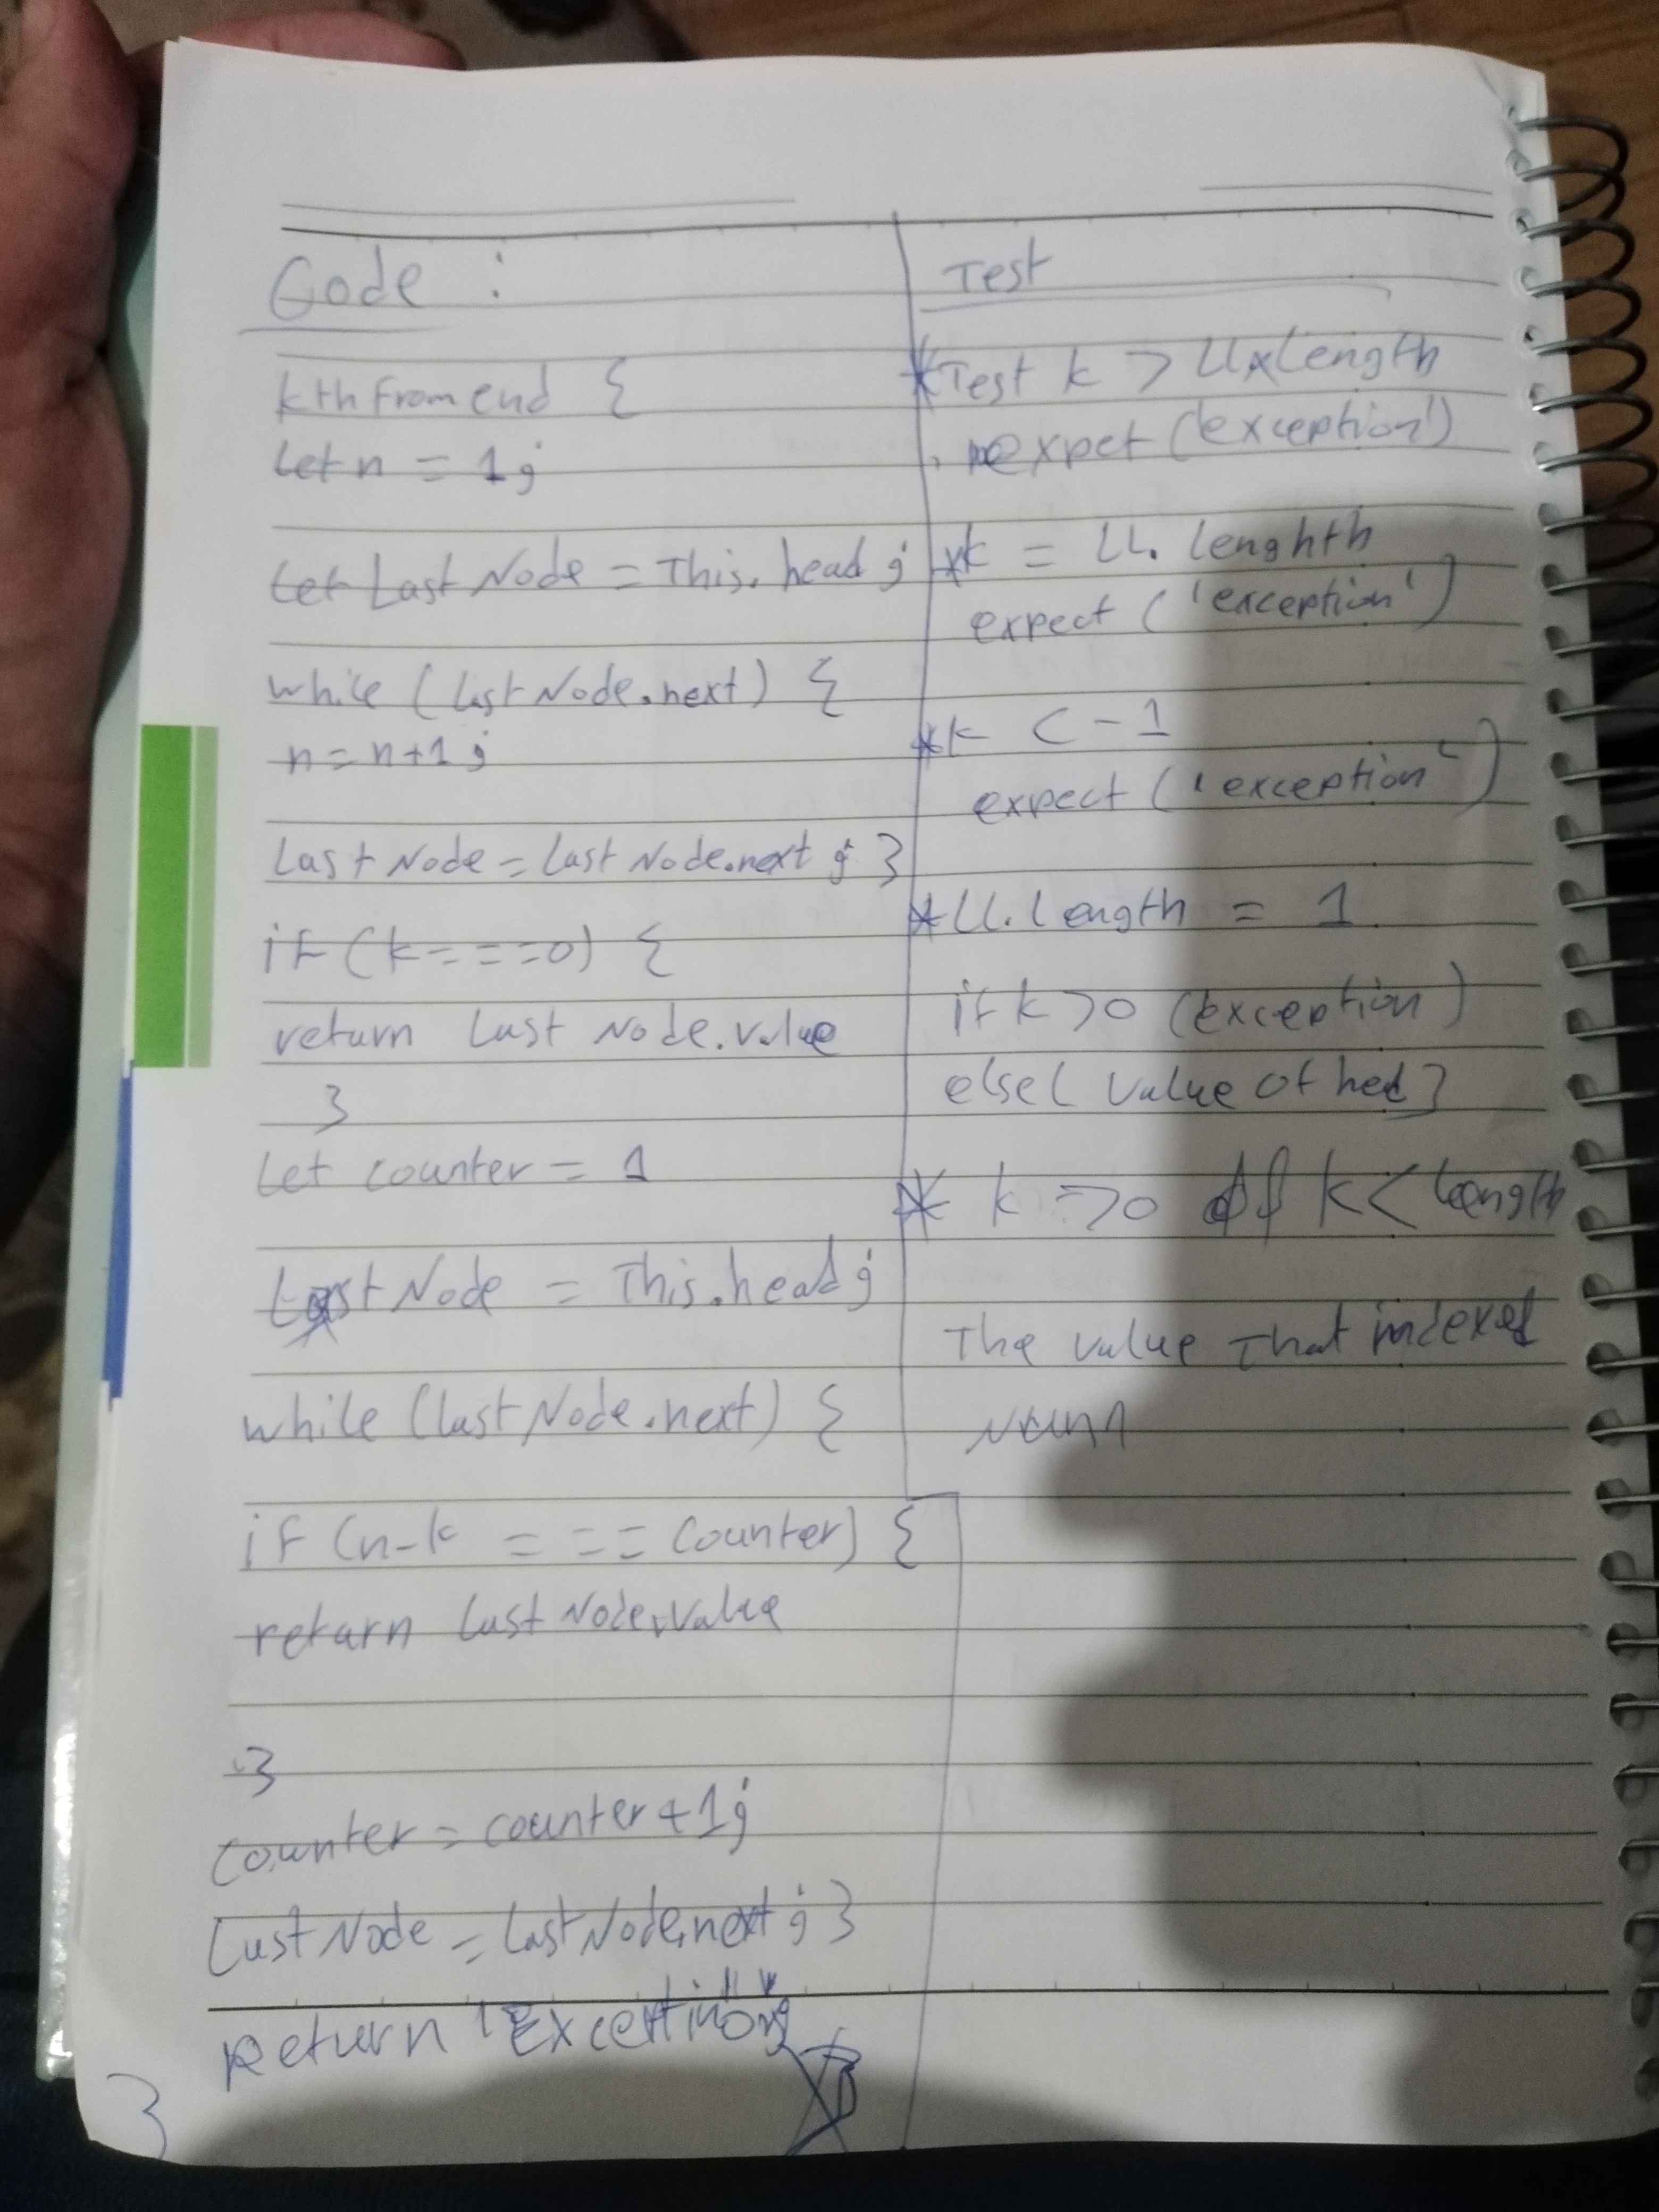 Code :
kthFromend {
let n = 1;
let Last Node = This. head ;
while (last Node.next) {
n = n+1 ;
Last Node = Last Node.next ; }
if (k===0) {
return Last Node.value
}
Let counter = 1
Last Node = This.head ;
while (last Node.next) {
if (n-k === counter) {
return Last Node.value
}
counter = counter +1 ;
Last Node = Last Node.next ; }
return 'Exception'
}
Test
* Test k > LL length
expet (exception')
* k = LL. lenghth
expect ('exception')
* k < -1
expect ('exception')
* LL.length = 1
if k >0 (exception)
else( value of hed }
* k >0 k < length
The value that indexed